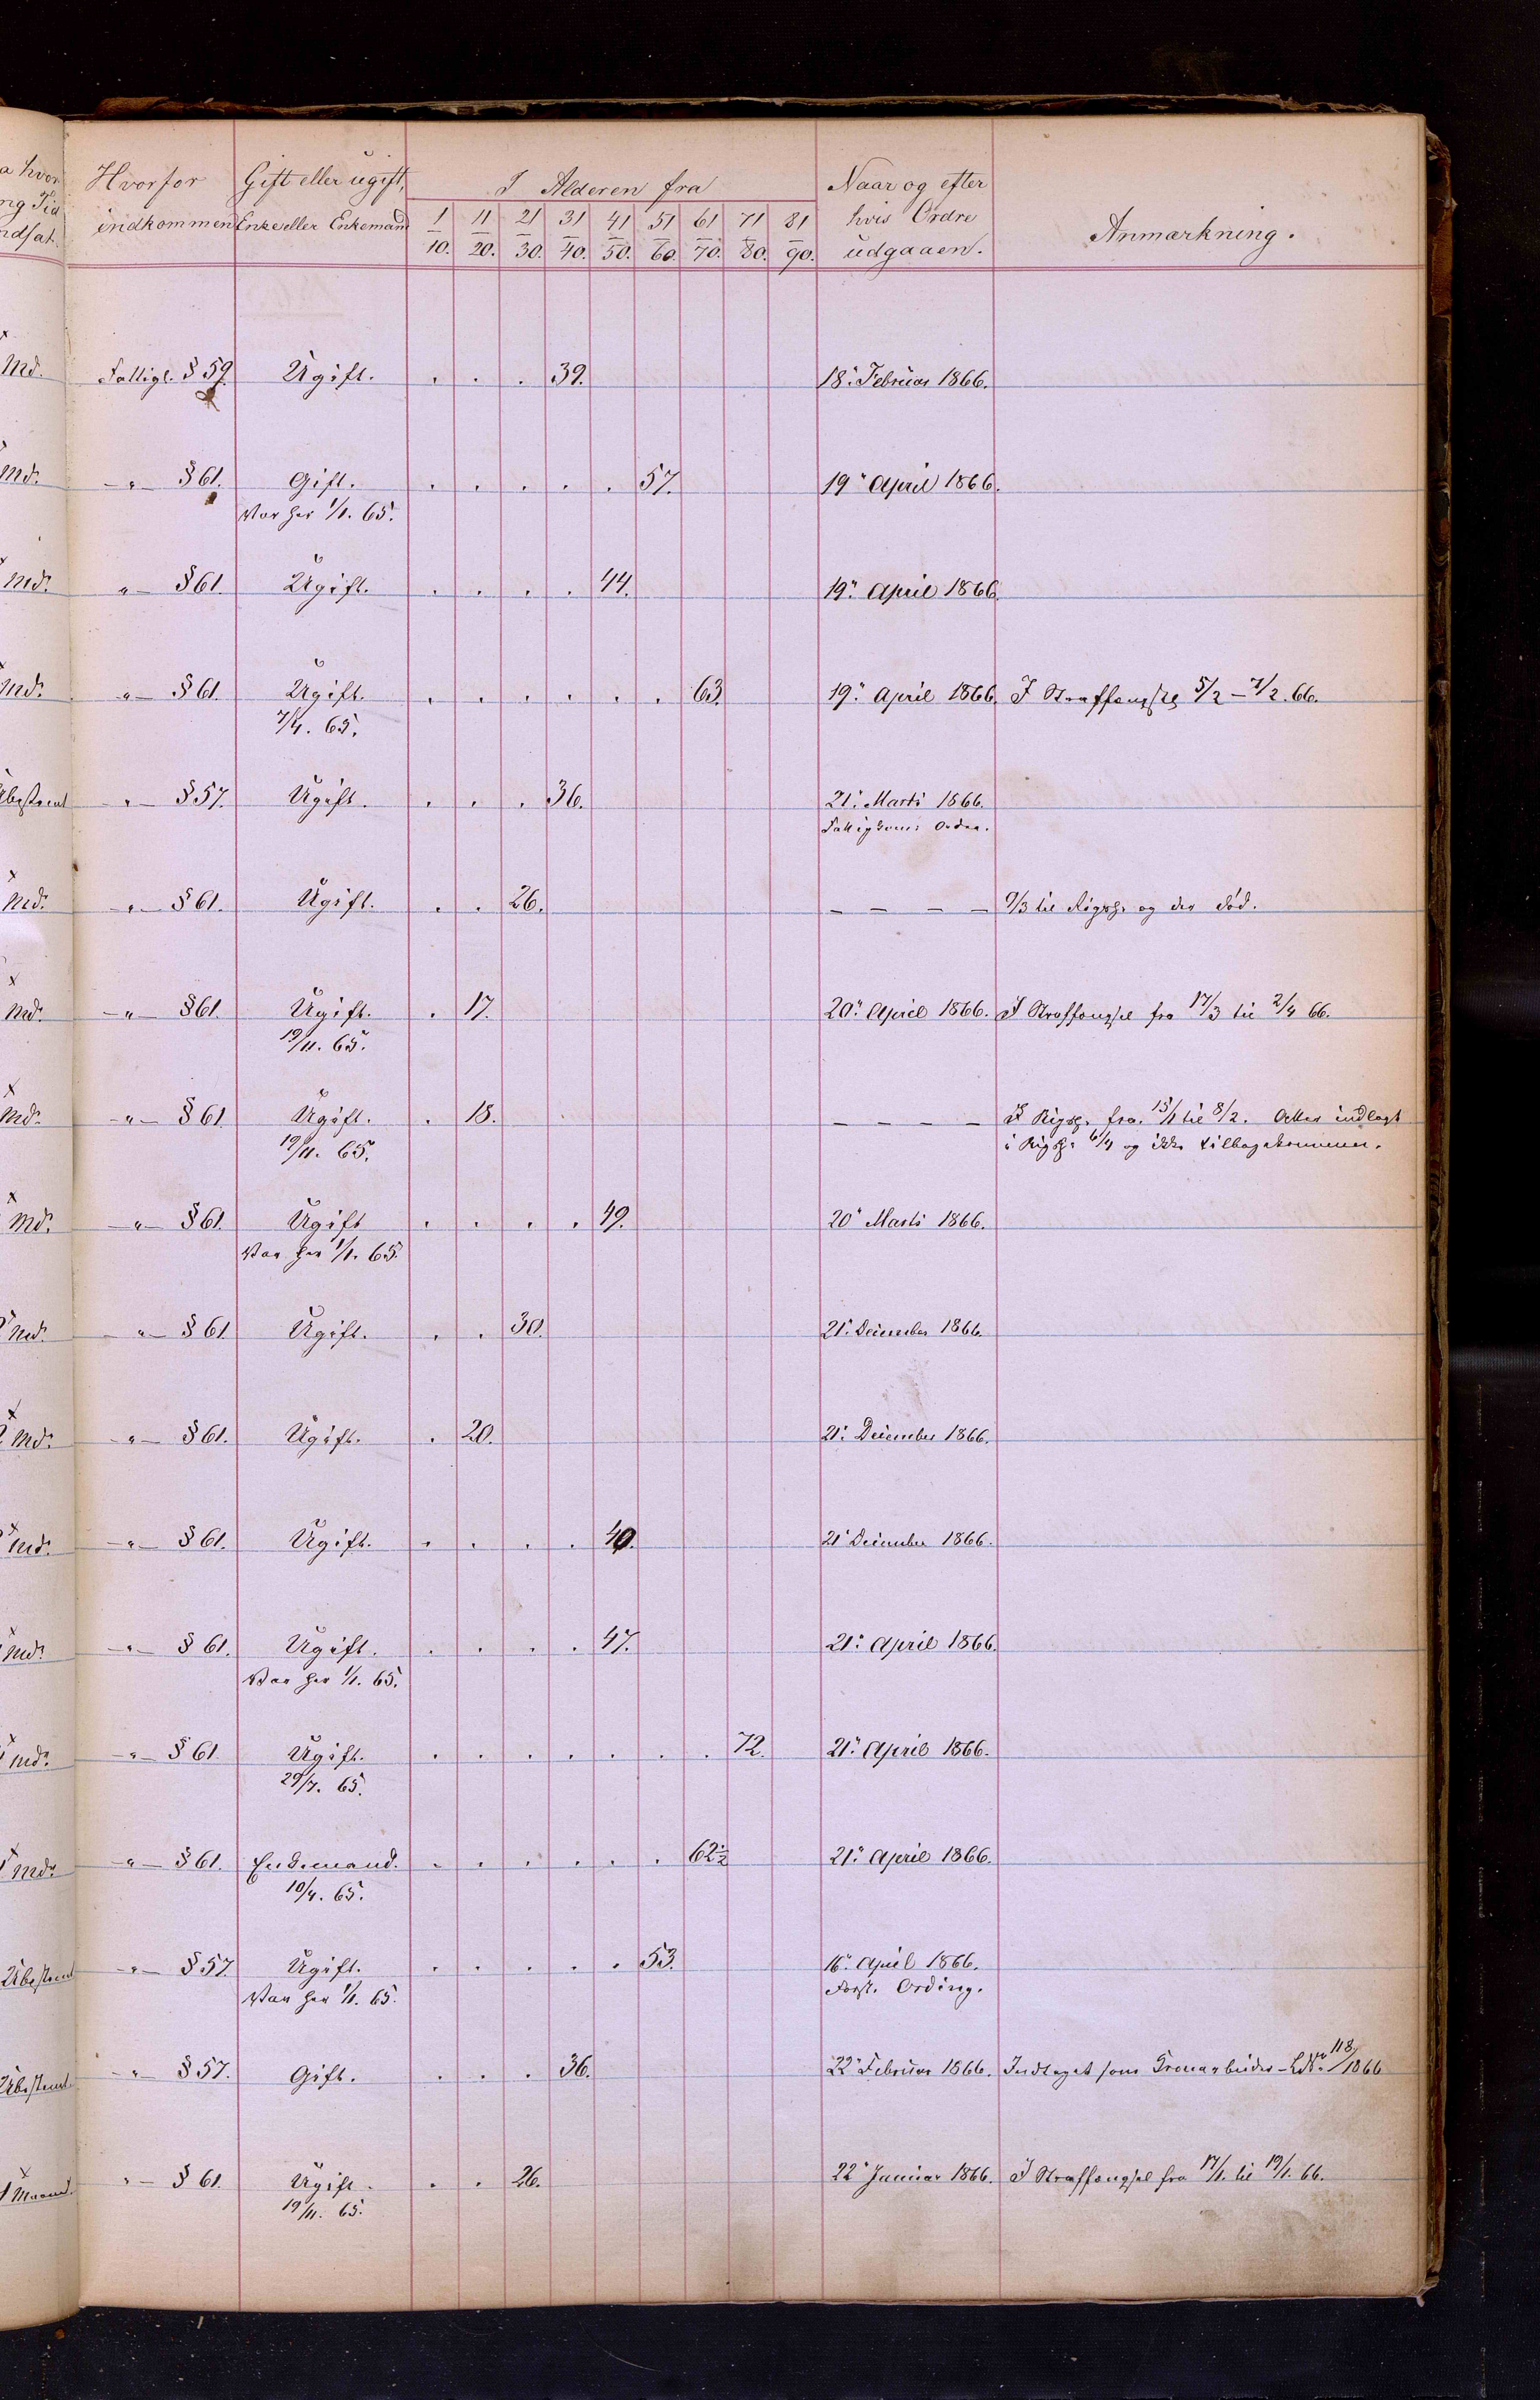 a hvor
ng Tid
ndsat.
Hvorfor indkommen
Gift eller ugift, Enke eller Enkemand
I Alderen fra
1/10. 11/20. 21/30. 31/40. 41/50. 51/60. 61/70. 71/80. 81/90.
Naar og efter hvis Ordre udgaaen.
Anmærkning.
Md. Fattigl. § 59. Ugift. . . . 39. 18. Februar 1866.
Md. -"- § 61. Gift. . . . . . 57. 19" April 1866.
Var her 1/1. 65.
Md. "- § 61. Ugift. . . . . 44. 19" April 1866.
Md. "- § 61. Ugift. . . . . . . 63. 19" April 1866. I Straffængsel 5/2 - 7/2. 66.
7/4. 65.
Ubestemt -"- § 57. Ugift. . . . 36. 21. Marts 1866.
Md. -"- § 61. Ugift. . . 26. - - - - til Rigsh. og der død.
Md. -"- § 61. Ugift. . 17. 20" April 1866. I Straffængsel fra 17/3 til 2/4 66.
19/11. 65.
Md. -"- § 61 Ugift. . 18. - - - - I Rigsh. fra 15/1 til 8/2. Atter indlagt
19/11. 65. i Rigsh. 6/4 og ikke tilbagekommen.
Md. -"- § 61. Ugift . . . . 49. 20" Marts 1866.
Var her 1/1. 65.
Md. -"- § 61 Ugift. . . 30. 21. December 1866.
Md. -"- § 61. Ugift. . 20. 21. December 1866.
Md. -"- § 61. Ugift. . . . . 40. 21 December 1866.
Md. -"- § 61. Ugift. . . . . 47. 21. April 1866.
Var her 1/1. 65.
Md. -"- § 61 Ugift. . . . . . . . 72. 21. April 1866.
29/7. 65.
Md. -"- § 61. Enkemand. . . . . . . 62½ 21. April 1866.
10/4. 65.
Ubestemt -"- § 57. Ugift. . . . . . 53. 16" April 1866.
Var her 1/1. 65. Forst. Ording.
Ubestemt -"- § 57. Gift. . . . 36. 22" Februar 1866. Indtaget som 118/1866
1 Maaned. "- § 61. Ugift. . . 26. 22" Januar 1866. I Straffængsel fra 17/1. til 19/1. 66.
19/11. 65.